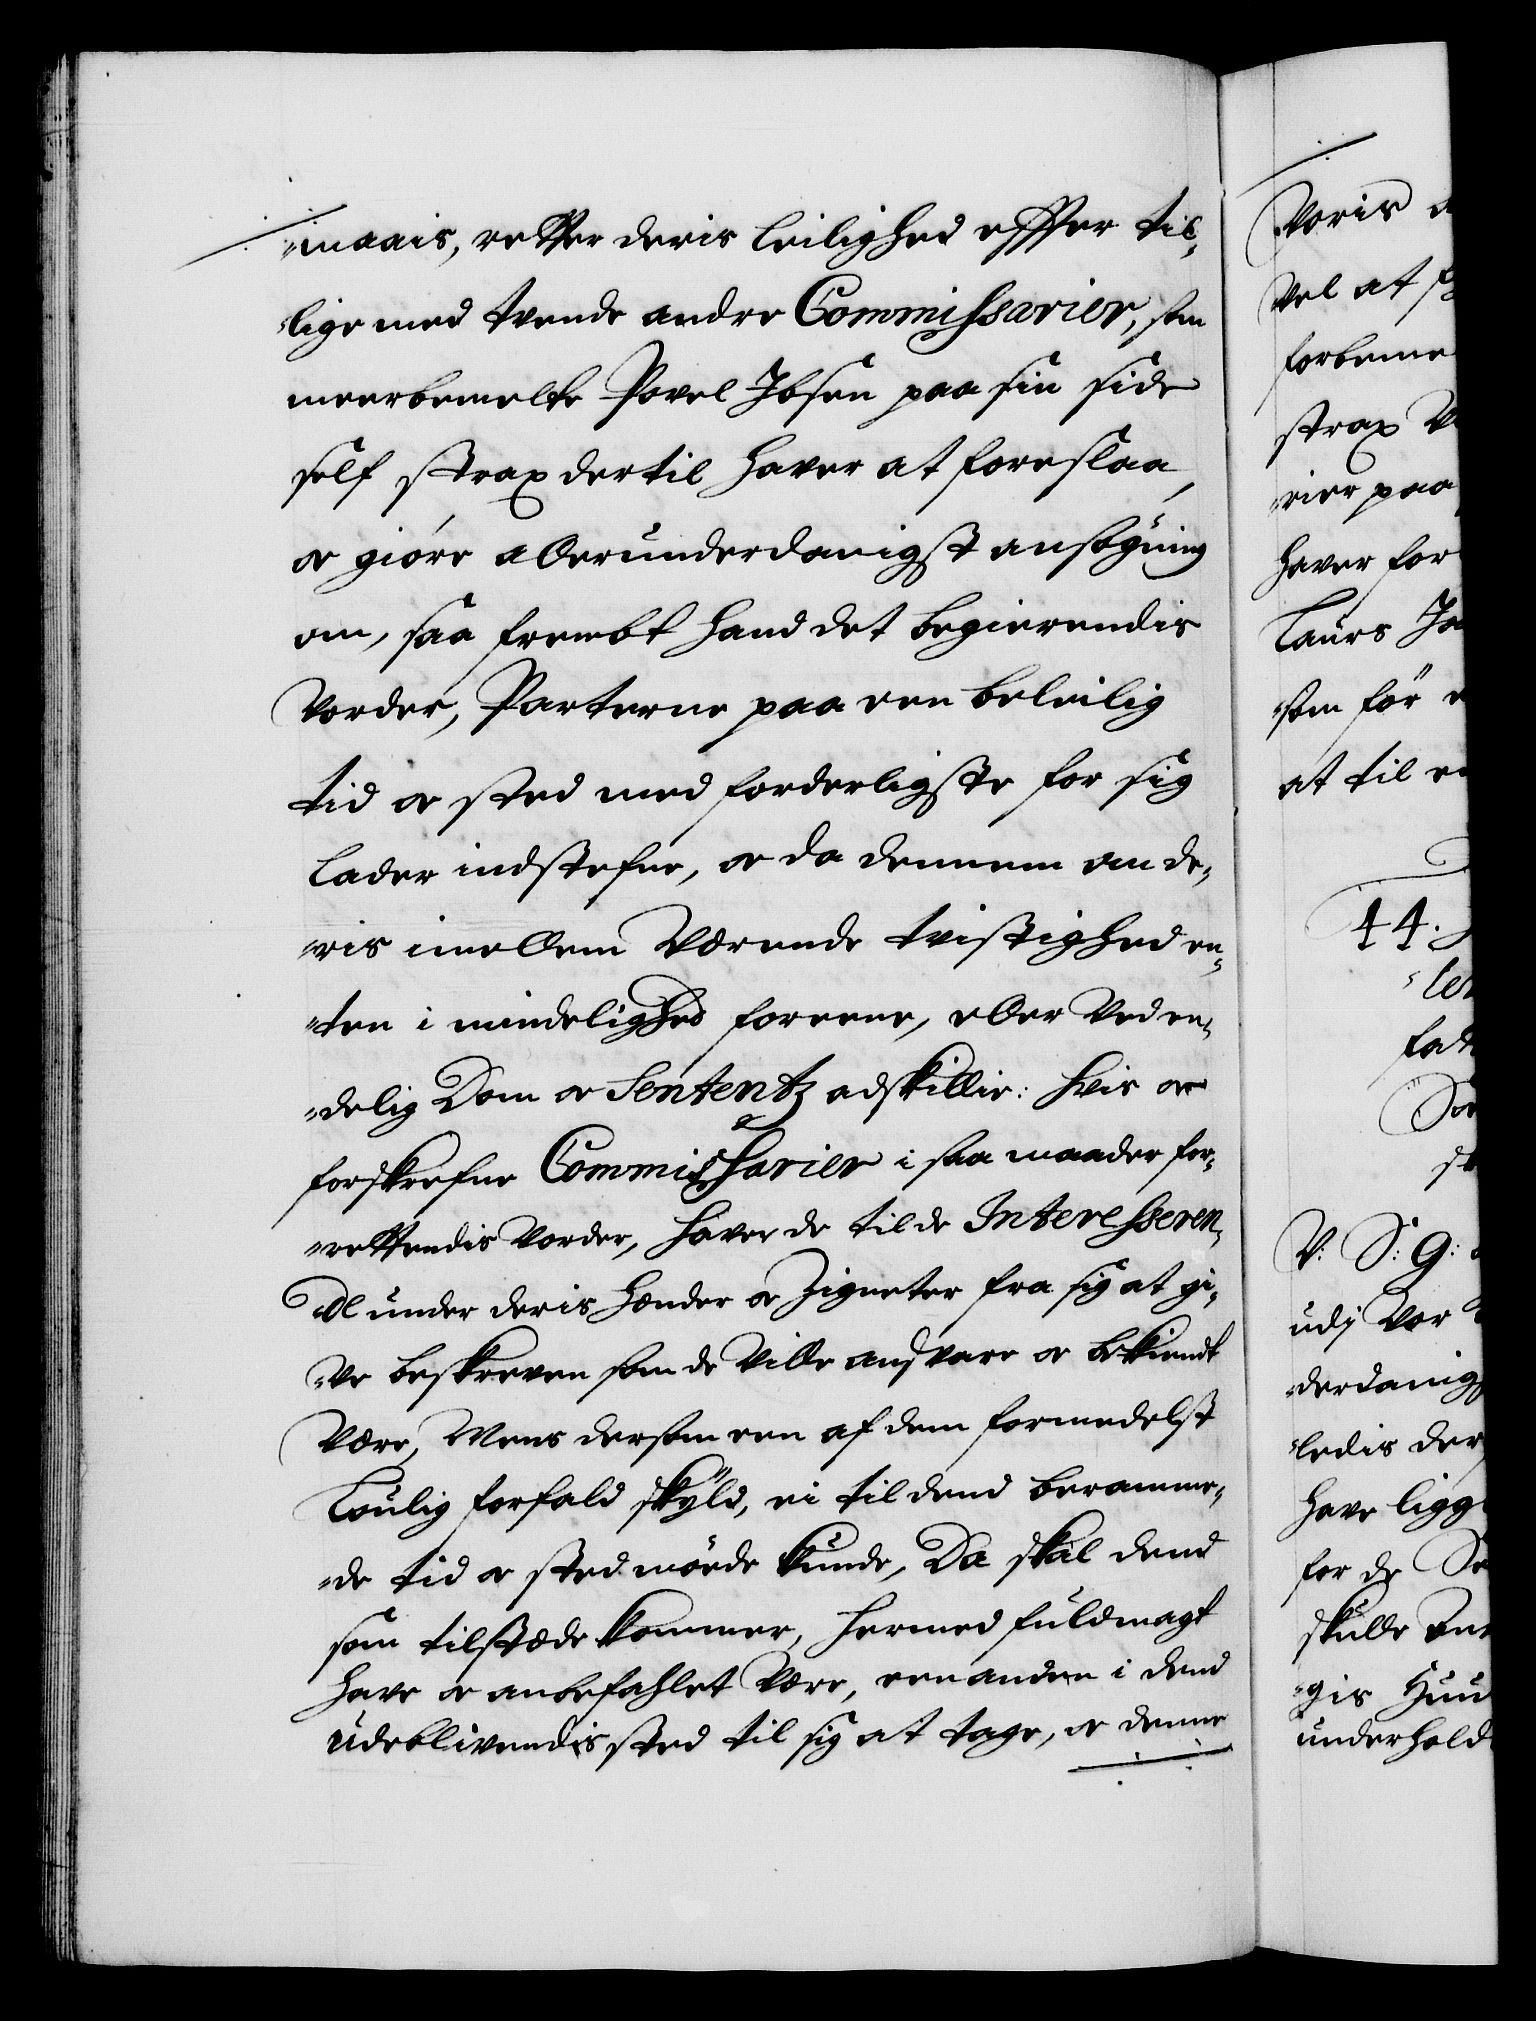 maais, retter deris leilighed effter til,
lige med tvende andre Commissarier, som
meerbemelte Povel Ibsen paa sin side
self strax dertil haver at foreslaa,
og giöre allerunderdanigst ansögning
om, saa frembt hand det begierendis
vorder, Parterne paa een beleilig
tid og sted med forderligste for sig
lader indstefne, og da dennem om de,
ris imellem værende tvistighed en,
ten i mindelighed foreene, eller ved en,
delig Dom og Sententz adskillie: hvis og
forskrefne Commissarier i saa maader for,
rettendis vorder, haver de til de Interesseren,
de under deris hænder og Zigneter fra sig at gi,
ve beskreven som de ville andsvare og bekiendt
være, Mens dersom een af dem formedelst
Loulig forfald skyld, ei til dend beramme,
de tid og sted möde kunde, Da skal dend
som tilstæde kommer, hermed fuldmagt
have og anbefahlet være, een anden i dend
udeblivendis sted til sig at tage, og denne
Voris
vel at
forbeme
strax
rier paa
haver for
Laurs
som för
at til
44.
V: S: G:
udj Vor
derdanig
ledis der
have ligg
for de
skulle
gis
underhold